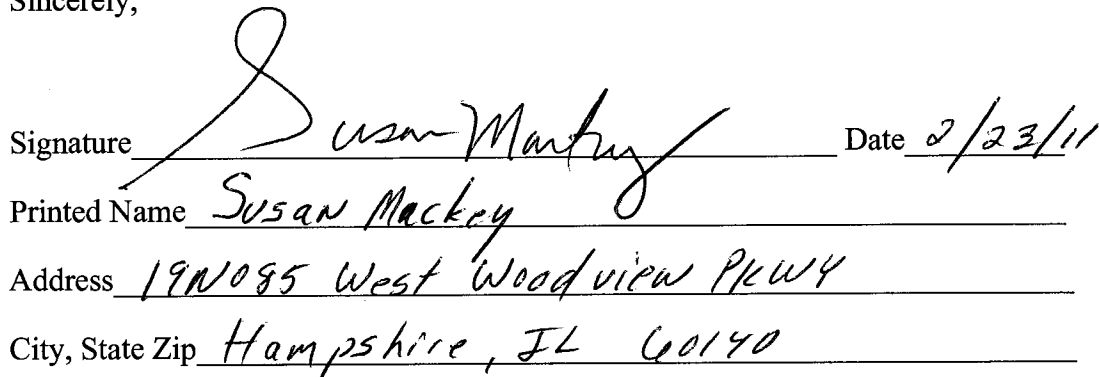 Sincerely,
Signature Susan Mackey Date 2/23/11
Printed Name Susan Mackey
Address 19N085 West Woodview PKWY
City, State Zip Hampshire, IL 60140